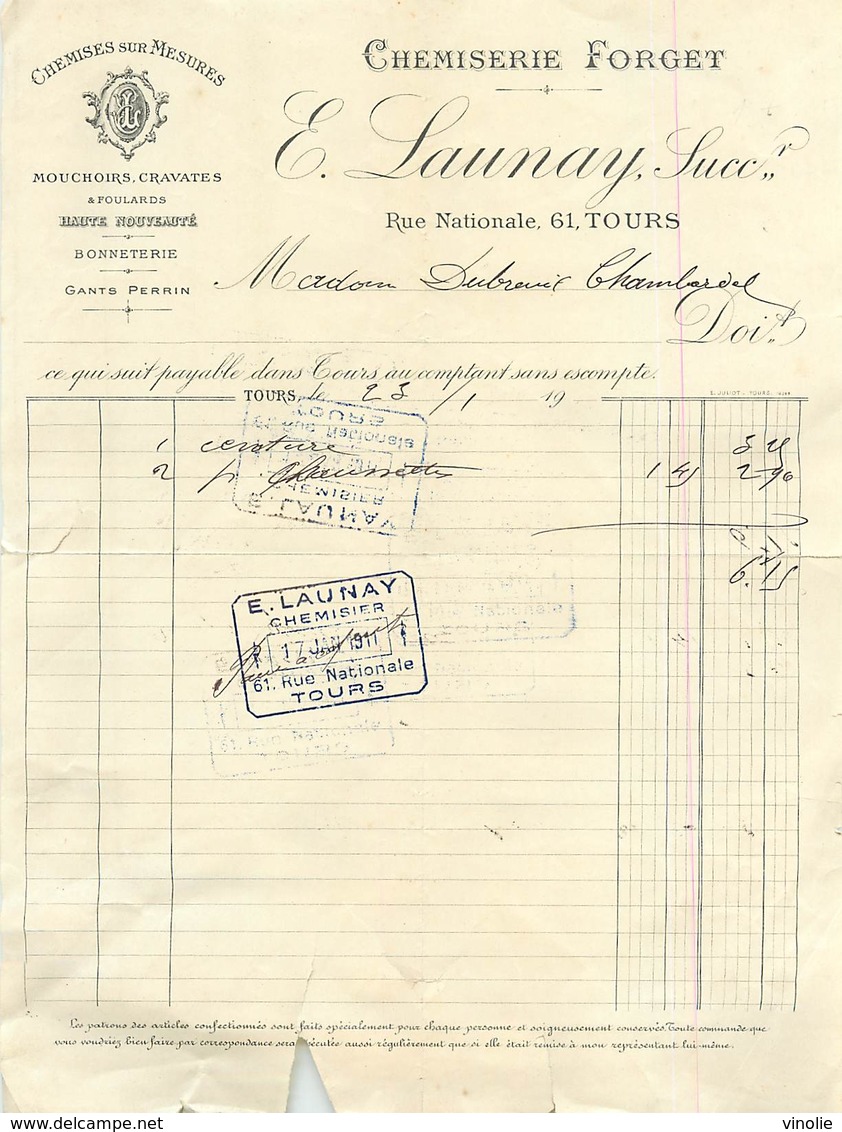 CHEMISES SUR MESURES
MOUCHOIRS, CRAVATES
& FOULARDS
HAUTE NOUVEAUTÉ
BONNETERIE
GANTS PERRIN
CHEMISERIE FORGET
E. Launay, Succr
Rue Nationale, 61, TOURS
Madam Dubreuil Chambardel
Doit
ce qui suit payable dans Tours au comptant sans escompte.
TOURS, le 23/1 19
E. JULIOT - TOURS
1 ceinture 3 25
2 p Chaussettes 1 45 2 90
6.15
E. LAUNAY
CHEMISIER
61, Rue Nationale
TOURS
E. LAUNAY
CHEMISIER
17 JAN 1911
61, Rue Nationale
TOURS
Rue Nationale
61, Rue Nationale
Les patrons des articles confectionnés sont faits spécialement pour chaque personne et soigneusement conservés. Toute commande que
vous voudriez bien faire par correspondance sera exécutée aussi régulièrement que si elle était remise à mon représentant lui-même.
delcampe.net
vinolie